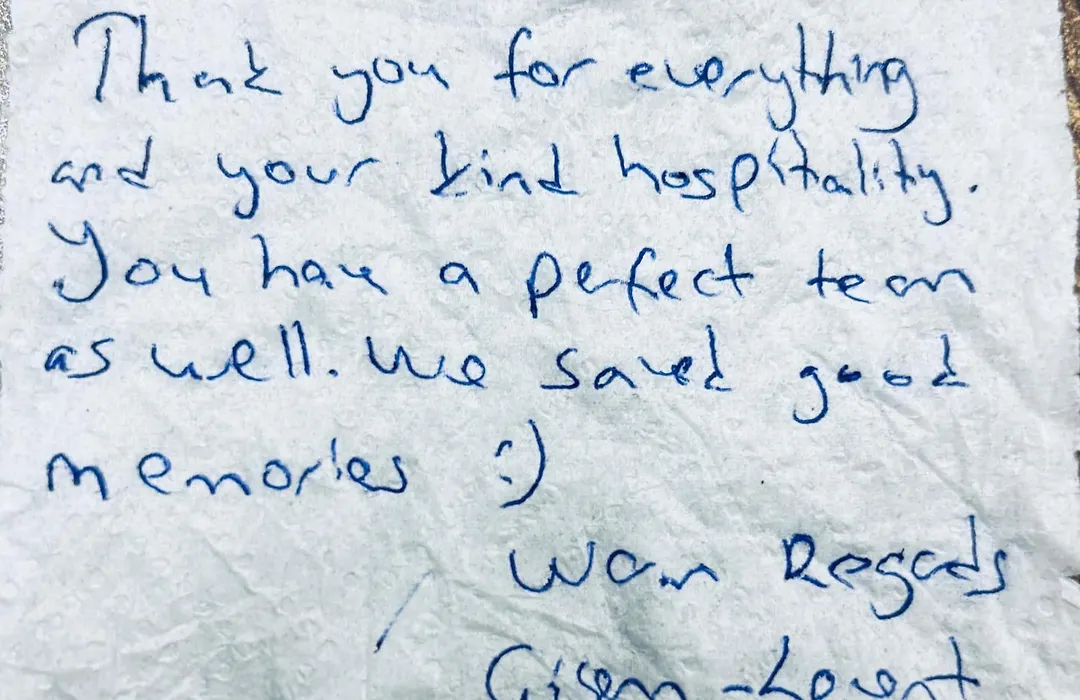 Thank you for everything
and your kind hospitality.
You have a perfect team
as well. We saved good
memories :)
Warm Regards